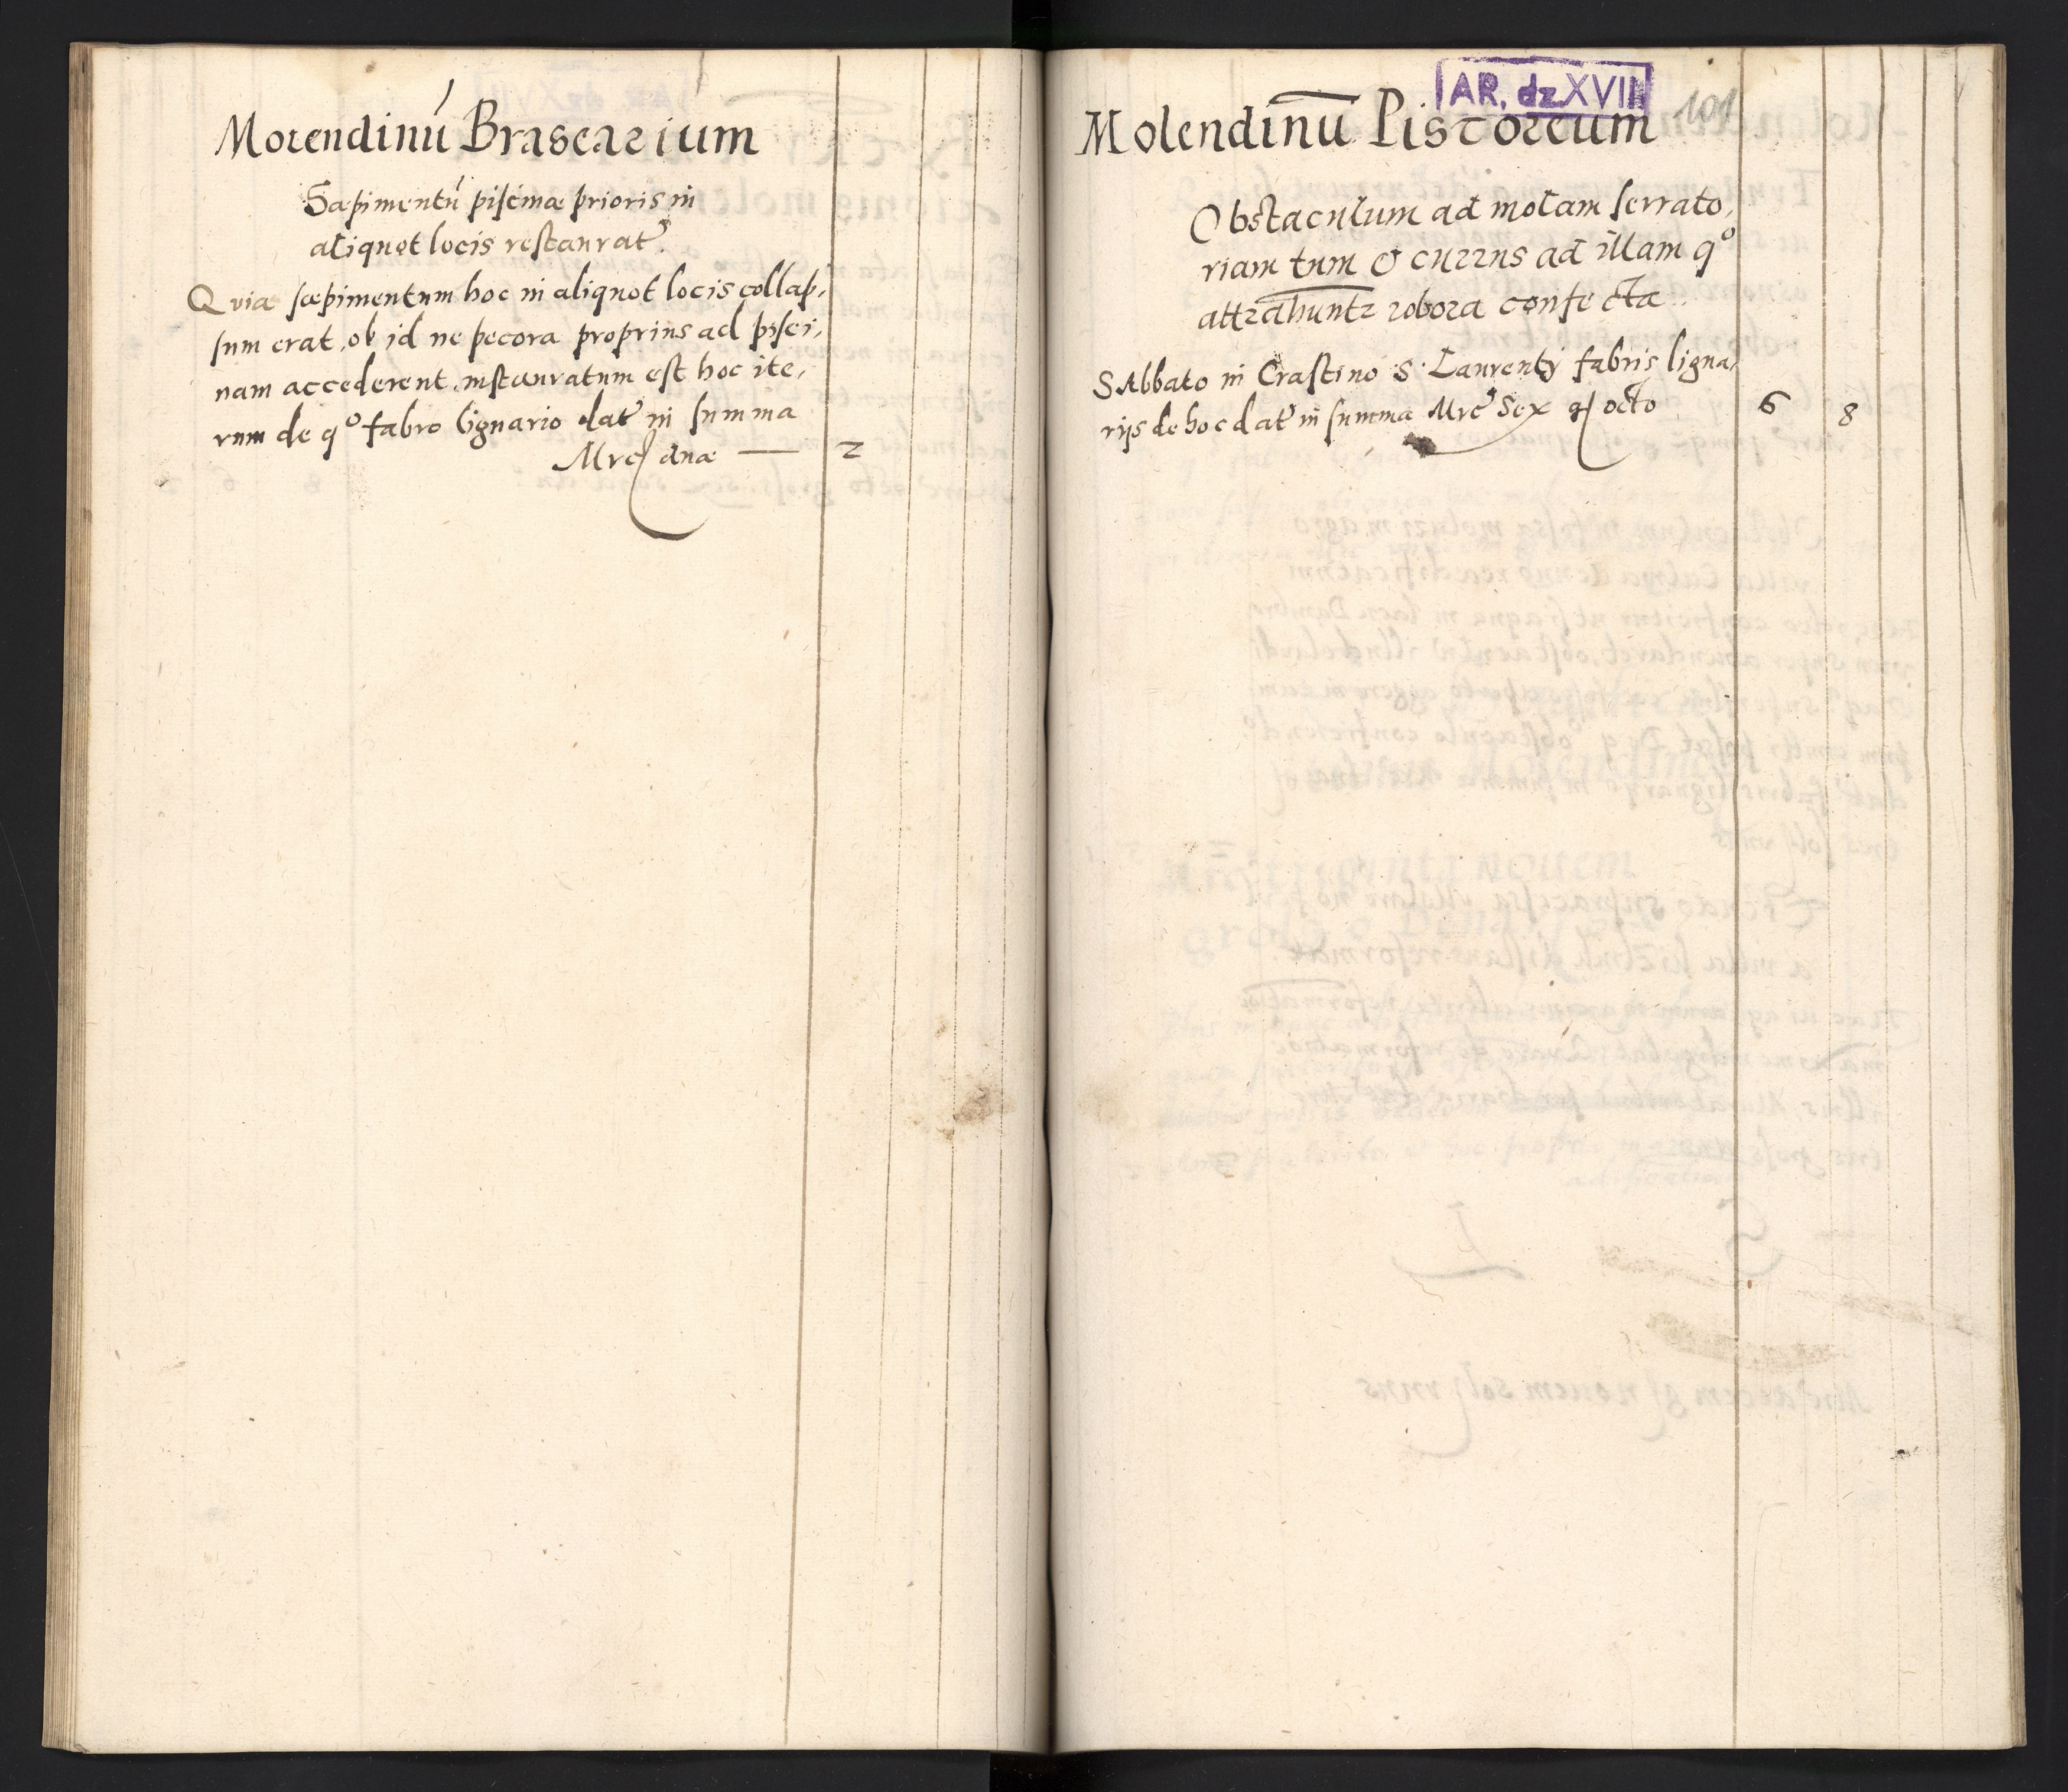 Molendinú Brasearium
Sæpimentú piscinæ prioris in
aliquot locis restaurat̉
Quia sæpimentum hoc in aliquot locis collap,
sum erat, ob id ne pecora proprius ad pisci,
nam accederent, instauratum est hoc ite,
rum de qº fabro lignario dat̉ in summa
Mrc duæ — 2
AR. dz XVIII
101
Molendinū Pistoreum
Obstaculum ad molam serrato,
riam tum & currus ad illam qº
attrahuntr robora confecta
SAbbato in Crastino S. Laurentij fabris ligna,
rijs de hoc dat̉ in summa Mrc̉ Sex gr octo 6 8